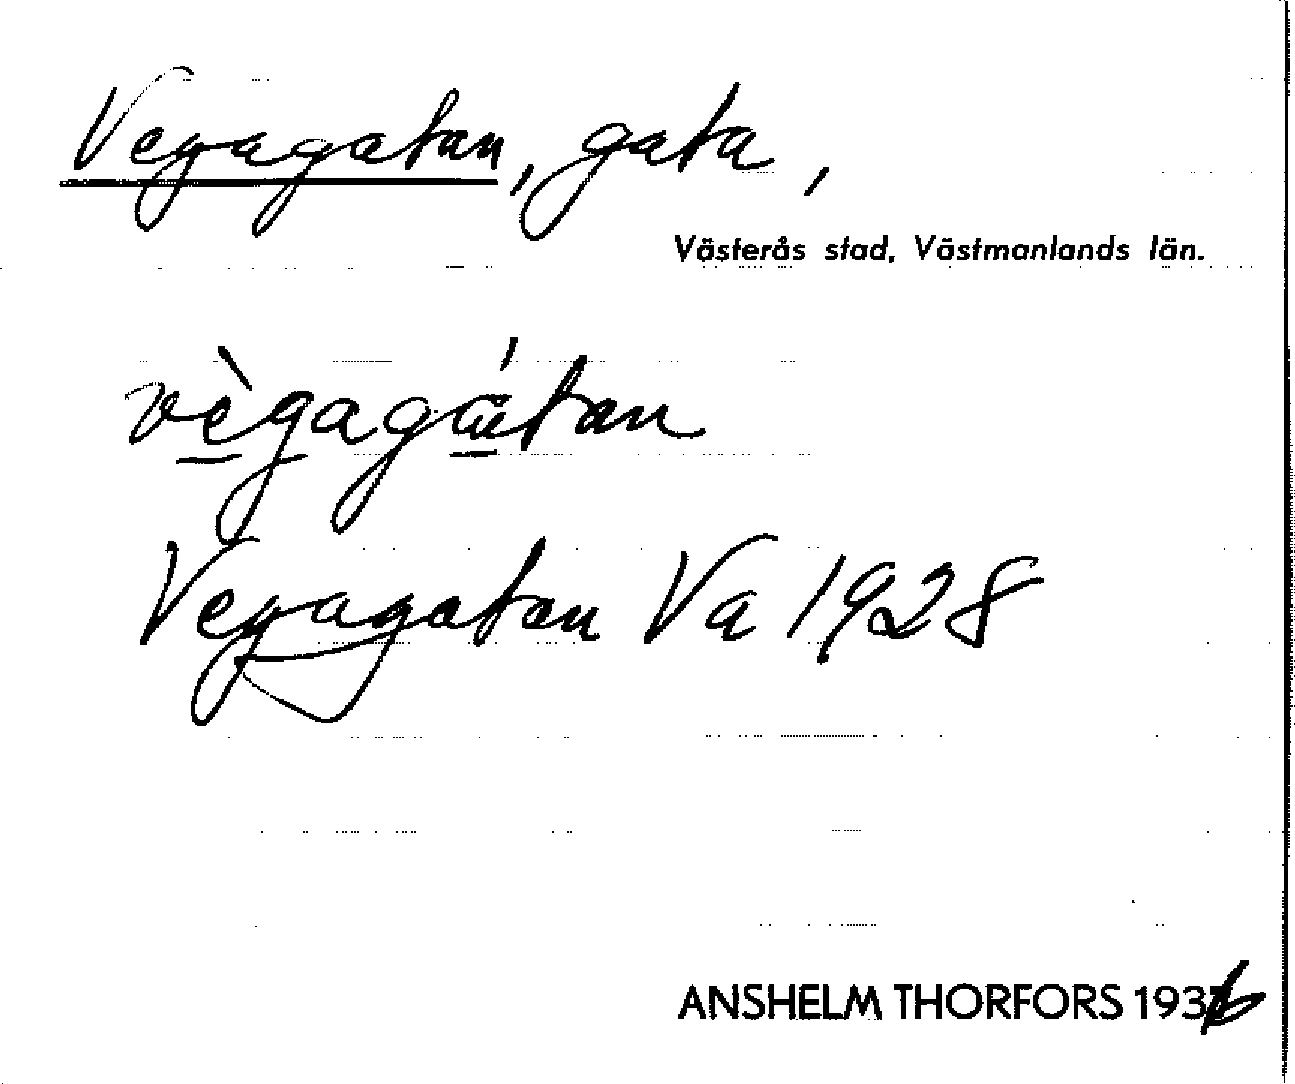 Vegagatan, gata,
Västerås stad, Västmanlands län.
vègagátan
Vegagatan Va 1928
ANSHELM THORFORS 1936